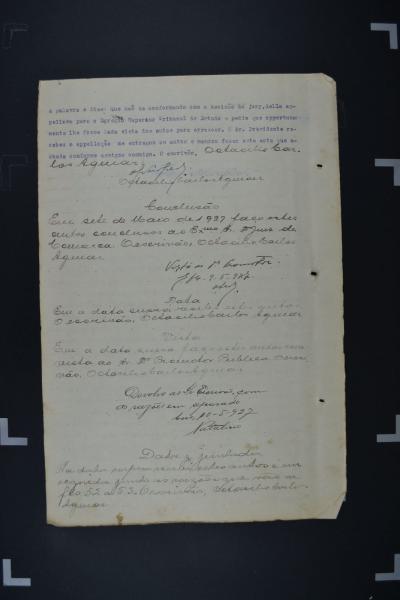 a palavra e disse: Que não se conformando com a decisão do jury, della ap-
pellava para o Egregio Superior Tribunal do Estado e pedia que opportuna-
mente lhe fosse dada vista dos autos para arrazoar. O Dr. Presidente re-
cebeu a appellação
assigna commigo. O escrivão, Octacilio Car-
los Aguiar.
Octacilio Carlos Aguiar
Conclusão
Em sete de Maio de 1927 faço estes
autos conclusos ao Exmo Sr. Dr Juiz de
Comarca. O escrivão, Octacilio Carlos
Aguiar
Vista ao Dr Promotor.
9-5-927
Data
Em a data supra recebi estes autos.
O escrivão, Octacilio Carlos Aguiar
Vista
Em a data supra faço estes autos com
vista ao Sr. Dr Promotor Publico. O escri-
vão, Octacilio Carlos Aguiar
Devolvo ao Sr Escrivão, com
as razões em separado
10-5-927
Data e Juntada
Na data supra recebi estes autos e em
seguida junto as razões que vão de
fls 52 a 53. O escrivão, Octacilio Carlos
Aguiar